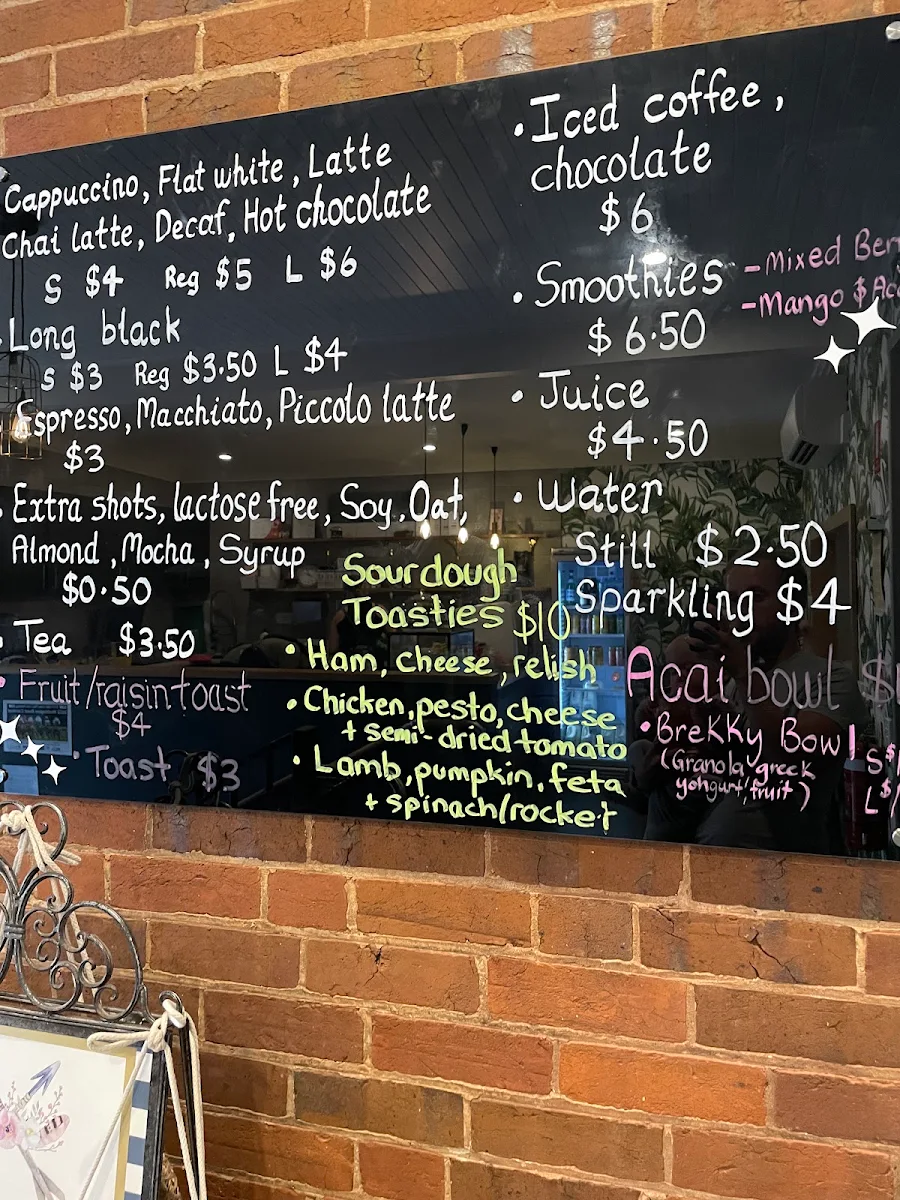 Cappuccino, Flat white, Latte
Chai latte, Decaf, Hot chocolate
S $4 Reg $5 L $6
Long black
S $3 Reg $3.50 L $4
Espresso, Macchiato, Piccolo latte
$3
Extra shots, lactose free, Soy, Oat,
Almond, Mocha, Syrup
$0.50
• Tea $3.50
• Fruit/raisin toast
$4
• Toast $3
Sourdough
Toasties $10
• Ham, cheese, relish
• Chicken, pesto, cheese
+ semi-dried tomato
• Lamb, pumpkin, feta
+ spinach/rocket
• Iced coffee,
chocolate
$6
• Smoothies
- Mixed
- Mango $
$6.50
• Juice
$4.50
• Water
Still $2.50
Sparkling $4
Acai bowl
• Brekky Bowl
(Granola, greek
yohgurt, fruit)
S
L